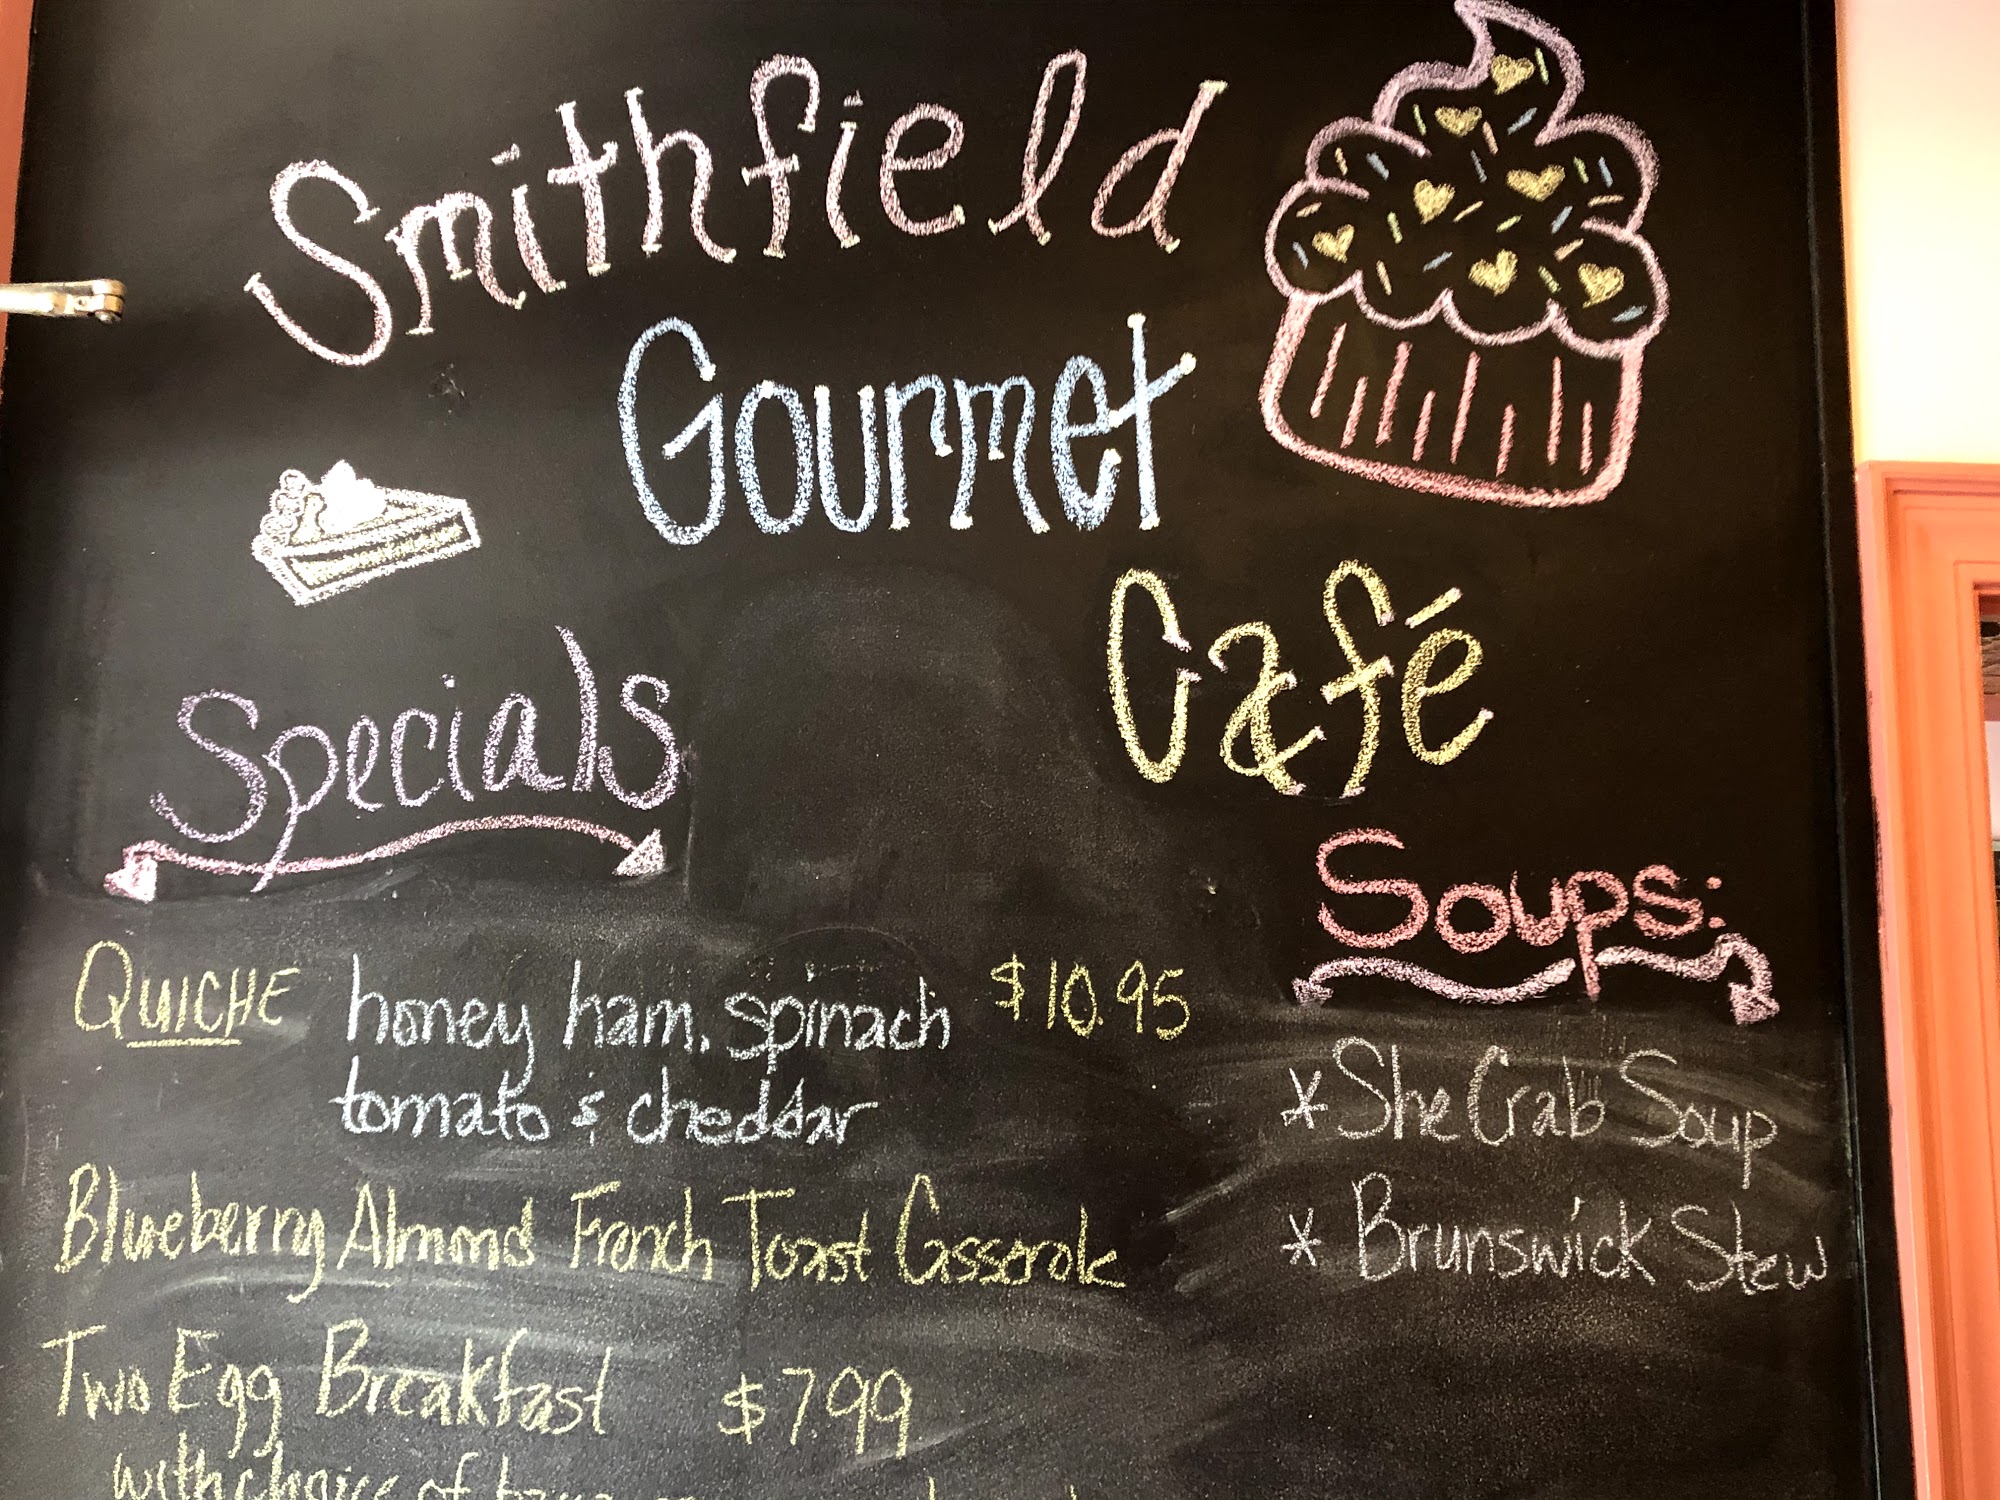 Smithfield
Gourmet
Café
Specials
QUICHE honey ham, spinach $10.95
tomato & cheddar
Blueberry Almond French Toast Casserole
Two Egg Breakfast $7.99
with choice of
Soups:
* She Crab Soup
* Brunswick Stew